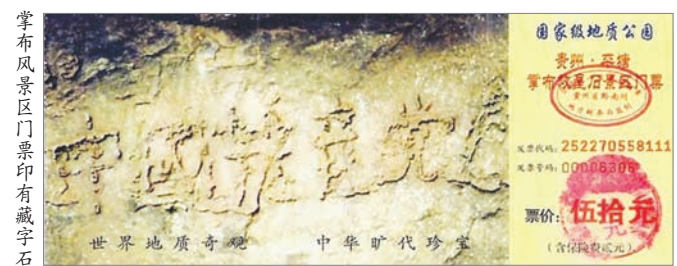 掌布风景区门票印有藏字石
中国共产党亡
世界地质奇观 中华旷代珍宝
国家级地质公园
贵州·平塘
掌布风景区门票
贵州省黔南州
发票代码: 252270558111
发票号码: 00006306
票价: 伍拾元
(含保险费贰元)